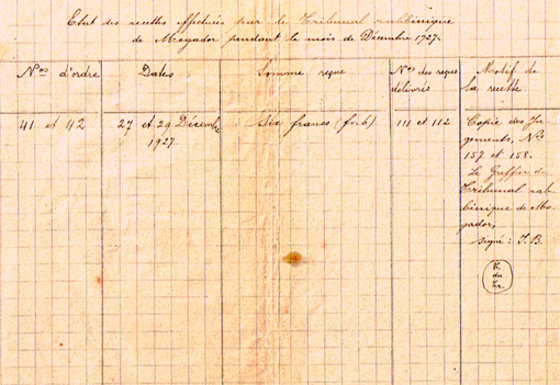 Etat des recettes effectuées par le Tribunal rabbinique
de Mogador pendant le mois de Décembre 1927.
Nos d'ordre
Dates
Somme reçue
Nos des reçus
délivrés
Motif de
la recette
41 et 42
27 et 29 Décembre
1927.
Six francs (frs 6)
111 et 112
Copie des Ju-
gements, Nos
157 et 158.
Le Greffier du
Tribunal rab-
binique de Mo-
gador,
signé : I. B.
T.
du
Tr.